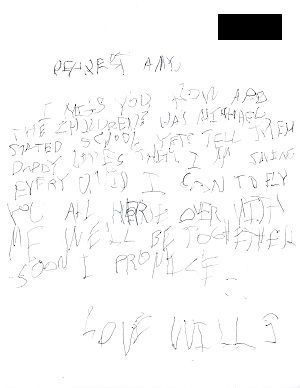 DEAREST AMY
I MISS YOU. HOW ARE
THE CHILDREN? HAS MICHAEL
STATED SCHOOL YET? TELL THEM
DADDY LOVES THEM I AM SAVING
EVERY I CAN TO FLY
YOU ALL HERE OVER WITH
ME WE'LL BE TOGETHER
SOON I PROMICE
LOVE WILL